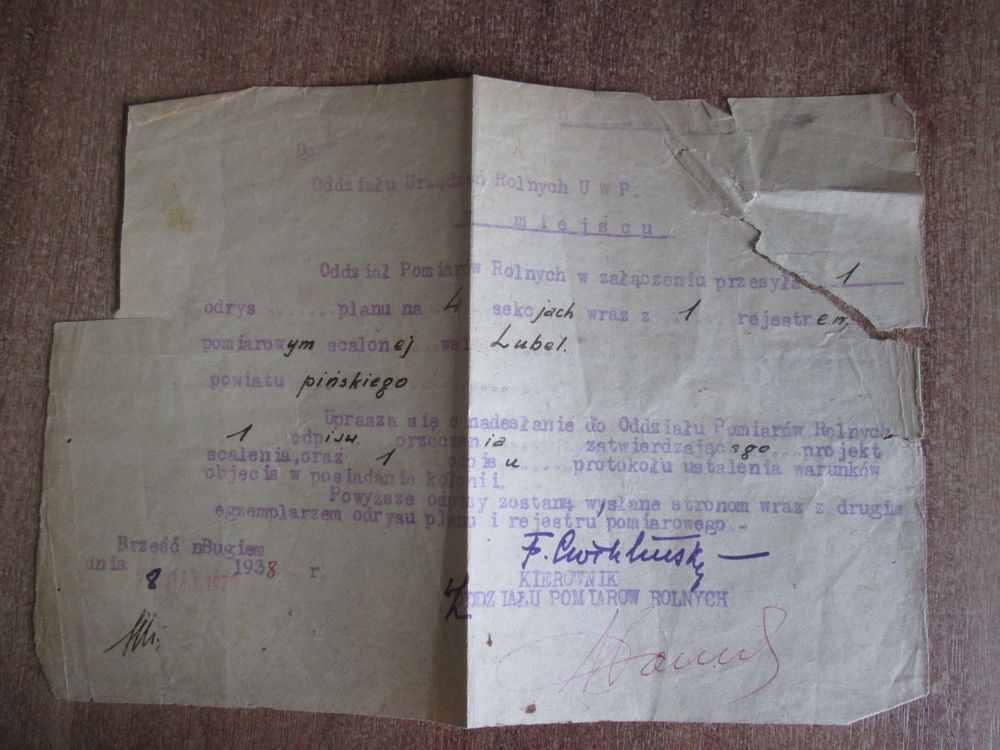 Do
Oddziału Urządzeń Rolnych U W P.
m i e j s c u
Oddział Pomiarów Rolnych w załączeniu przesyła 1
odrys ....... planu na 4 sekcjach wraz z 1 .... rejestrem
pomiarowym scalonej wsi Lubel.
powiatu pińskiego ............
Uprasza się o nadesłanie do Oddziału Pomiarów Rolnych
1 odpisu orzeczenia ....... zatwierdzającego ... projekt
scalenia, oraz 1 odpisu ..... protokołu ustalenia warunków
objęcia w posiadanie kolonii.
Powyższe odpisy zostaną wysłane stronom wraz z drugim
egzemplarzem odrysu planu i rejestru pomiarowego.-
Brześć nBugiem
dnia 8 1938 r.
KIEROWNIK
ODDZIAŁU POMIARÓW ROLNYCH